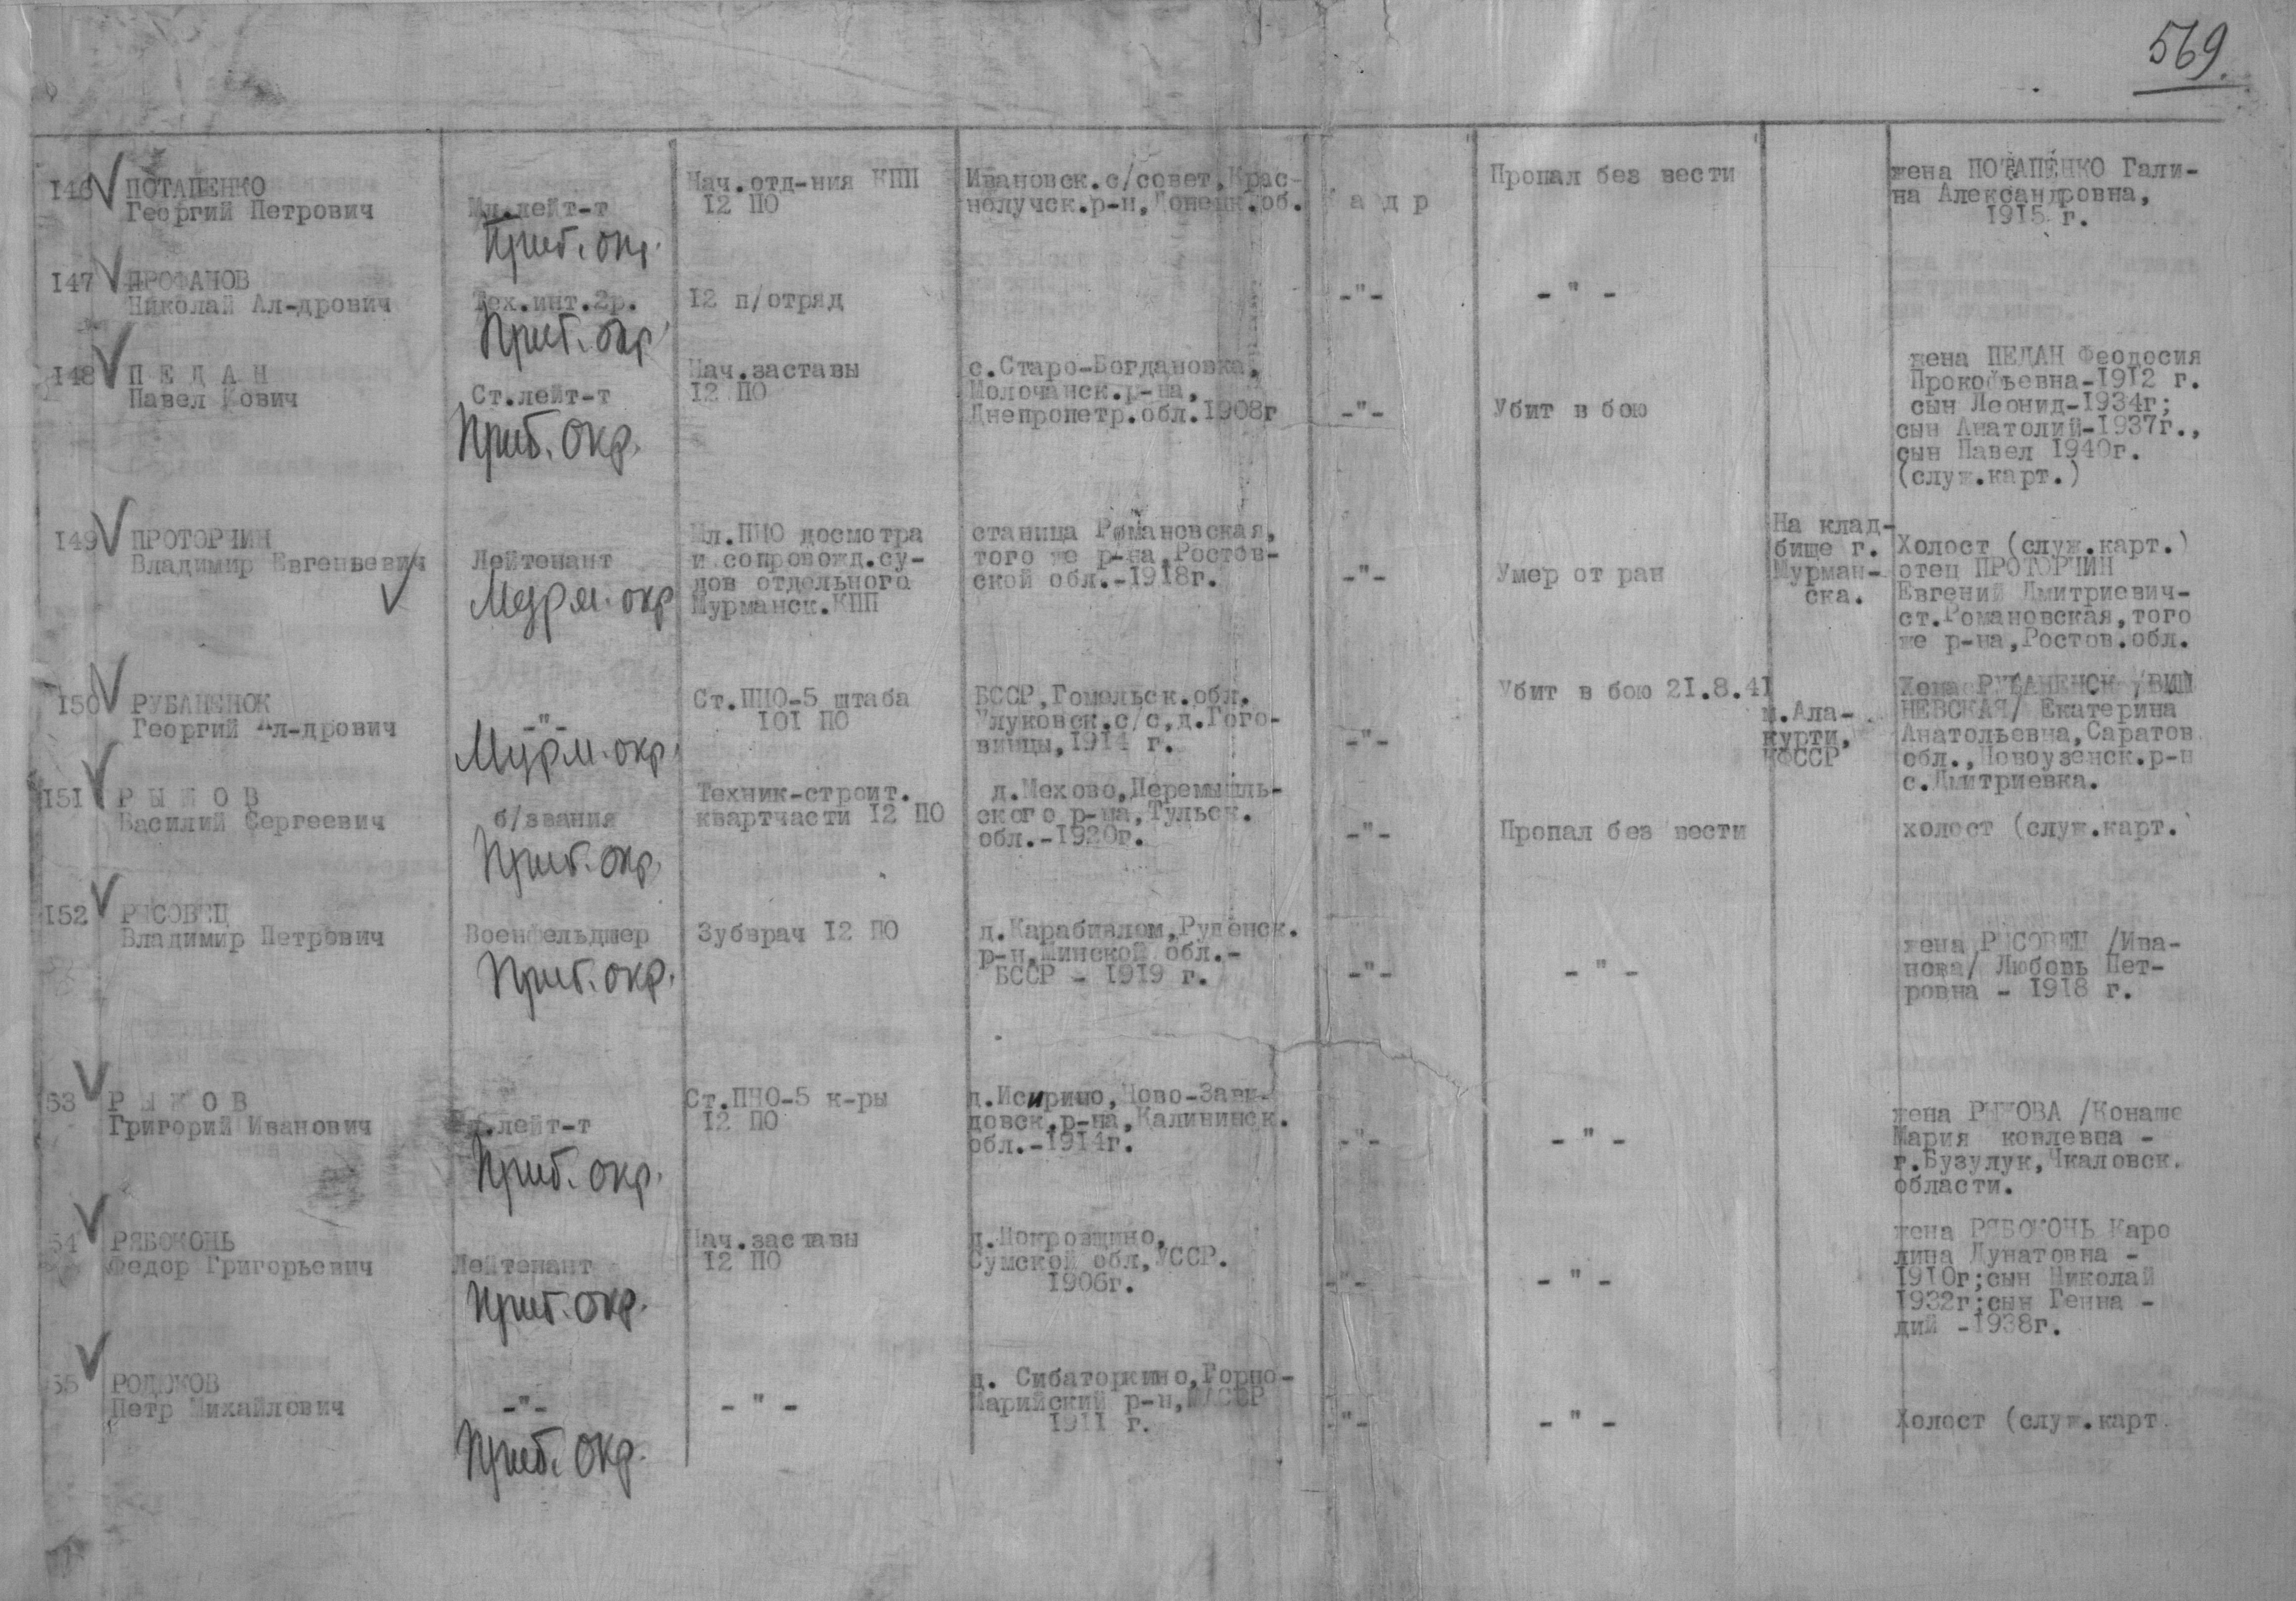 569.
146 ПОТАПЕНКО
Георгий Петрович
Мл.лейт-т
Приб. окр.
Нач.отд-ния КПП
12 ПО
Ивановск.с/совет,Крас-
нолучск.р-н,Донецк.об.
Кадр
Пропал без вести
жена ПОТАПЕНКО Гали-
на Александровна,
1915 г.
147 ПРОФАНОВ
Николай Ал-дрович
Тех.инт.2р.
Приб. окр.
12 п/отряд
-"-
- " -
148 ПЕДАН
Павел Кович
Ст.лейт-т
Приб. окр.
Нач.заставы
12 ПО
с.Старо-Богдановка,
Молочанск.р-на,
Днепропетр.обл.1908г
-"-
Убит в бою
жена ПЕДАН Феодосия
Прокофьевна-1912 г.
сын Леонид-1934г;
сын Анатолий-1937г.,
сын Павел 1940г.
(служ.карт.)
149 ПРОТОРЧИН
Владимир Евгеньевич
Лейтенант
Мурм. окр
Мл.ПНО досмотра
и сопровожд.су-
дов отдельного
Мурманск.КПП
станица Романовская,
того же р-на,Ростов-
ской обл.-1918г.
-"-
Умер от ран
На клад-
бище г.
Мурман-
ска.
Холост (служ.карт.)
отец ПРОТОРЧИН
Евгений Дмитриевич-
ст.Романовская,того
же р-на,Ростов.обл.
150 РУБАНЕНОК
Георгий Ал-дрович
-"-
Мурм. окр.
Ст.ПНО-5 штаба
101 ПО
БССР,Гомельск.обл.
Улуковск.с/с,д.Гого-
винцы,1914 г.
-"-
Убит в бою 21.8.41
м.Ала-
курти,
КФССР
Жена РУБАНЕНОК /ВИШ
НЕВСКАЯ/ Екатерина
Анатольевна,Саратов
обл.,Новоузенск.р-н
с.Дмитриевка.
151 РЫЖОВ
Василий Сергеевич
б/звания
Приб. окр.
Техник-строит.
квартчасти 12 ПО
д.Мехово,Перемышль-
ского р-на,Тульск.
обл.-1920г.
-"-
Пропал без вести
холост (служ.карт.
152 РЫСОВЕЦ
Владимир Петрович
Военфельдшер
Приб. окр.
Зубврач 12 ПО
р-н,Минской обл.-
БССР - 1919 г.
-"-
- " -
жена РЫСОВЕЦ /Ива-
нова/ Любовь Пет-
ровна - 1918 г.
53 РЫЖОВ
Григорий Иванович
Мл.лейт-т
Приб. окр.
Ст.ПНО-5 к-ры
12 ПО
д.Исирино,Ново-Зави-
довск.р-на,Калининск.
обл.-1914г.
-"-
- " -
жена РЫЖОВА /Конаше
Мария ковлевна -
г.Бузулук,Чкаловск.
области.
54 РЯБОКОНЬ
Федор Григорьевич
Лейтенант
Приб. окр.
Нач.заставы
12 ПО
д.Покровщино,
Сумской обл,УССР.
1906г.
-"-
- " -
жена РЯБОКОНЬ Каро
лина Дунатовна -
1910г;сын Николай
1932г;сын Генна -
дий -1938г.
55 РОДЮКОВ
Петр Михайлович
-"-
Приб. окр.
- " -
д. Сибаторкино,Горно-
Марийский р-н,МАССР
1911 г.
-"-
- " -
Холост (служ.карт.